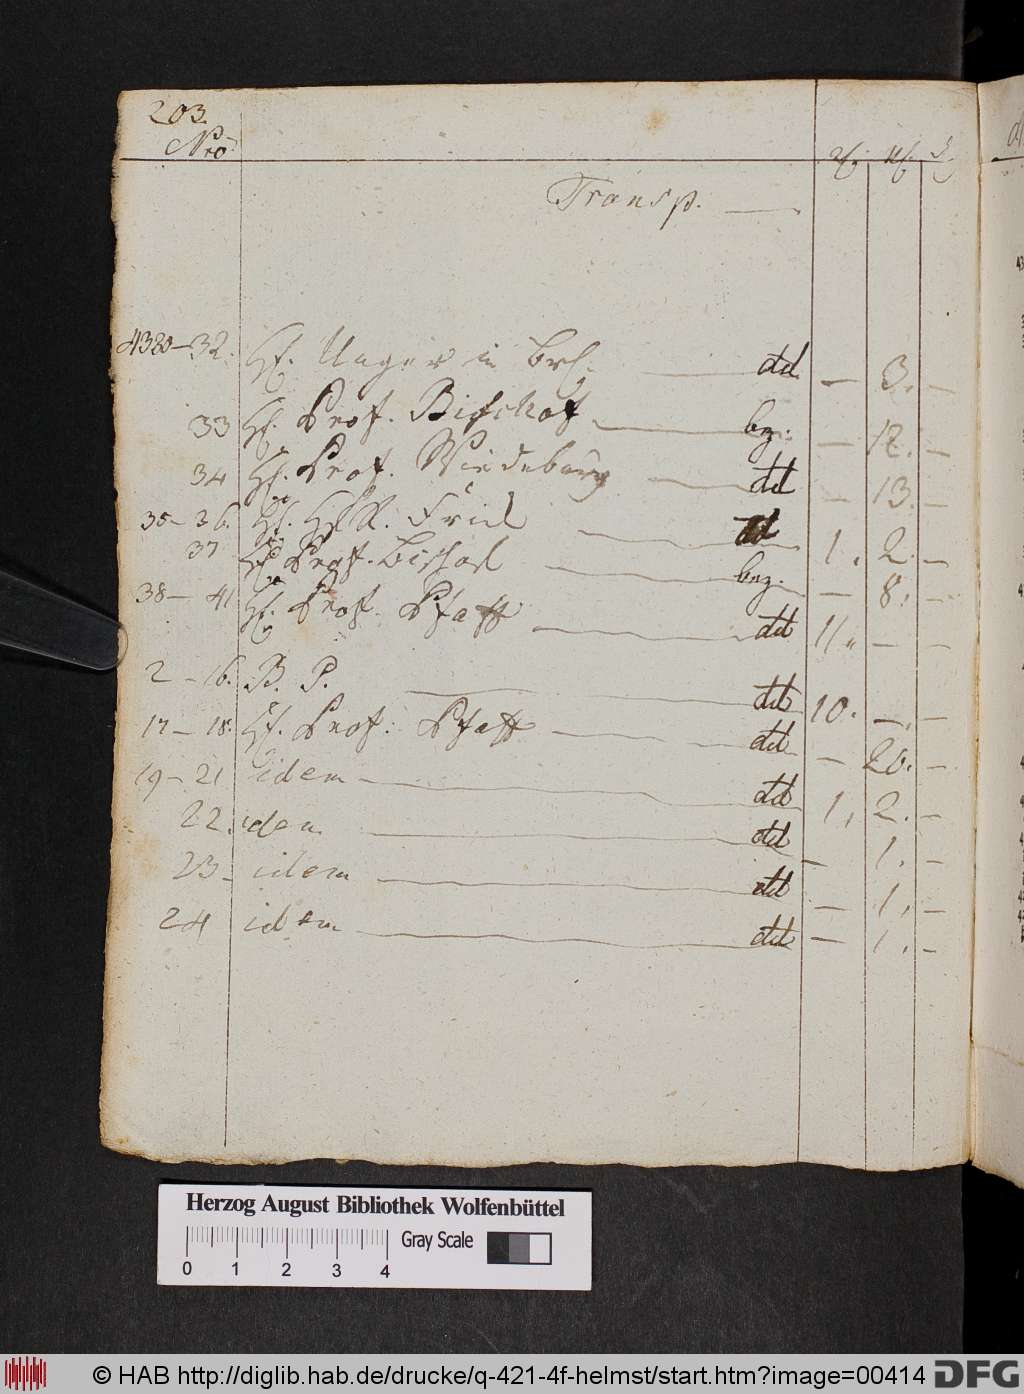 203.
Nro
Transp. —
4380—32. H. Unger in Brſ. — dd — 3. —
33 H. Prof. Bischof — bz. — 12. —
34 H. Prof. Wiedeburg — dd — 13. —
35—36. H. HfR. Frid — dd 1. 2. —
37 H. Prof. Bischof — bez. — 8. —
38— 41 H. Prof. Pfaff — dd 11. — —
2 —16. B. P. — dd 10. — —
17— 18. H. Prof. Pfaff — dd — 20. —
19—21 idem — dd 1. 2. —
22. idem — dd — 1. —
23— idem — dd — 1. —
24 idem — dd — 1. —
Herzog August Bibliothek Wolfenbüttel
Gray Scale
0 1 2 3 4
© HAB http://diglib.hab.de/drucke/q-421-4f-helmst/start.htm?image=00414 DFG